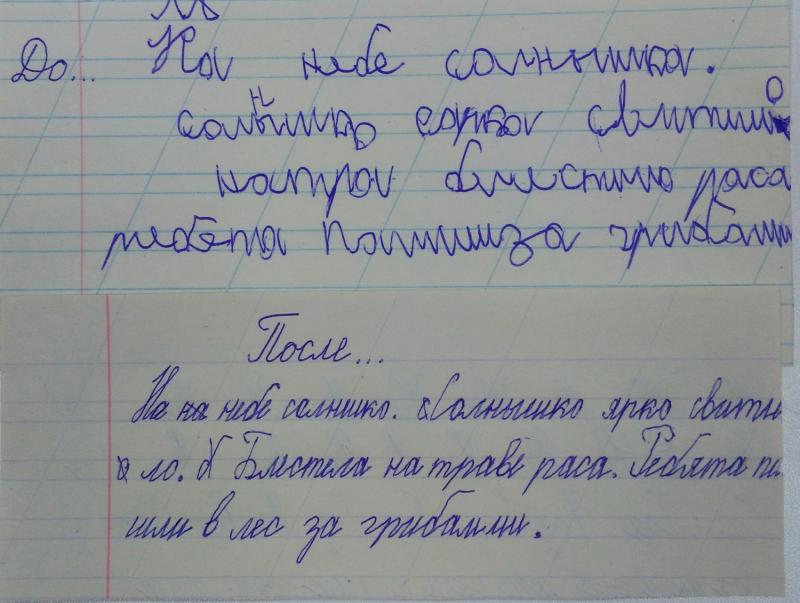 До... На небе солнышка.
солнышко
натров блистит раса
ребята пашли за грибами
После...
На на небе солнишко. Солнышко ярко свити
ло. Блистела на траве раса. Ребята па
шли в лес за грибами.